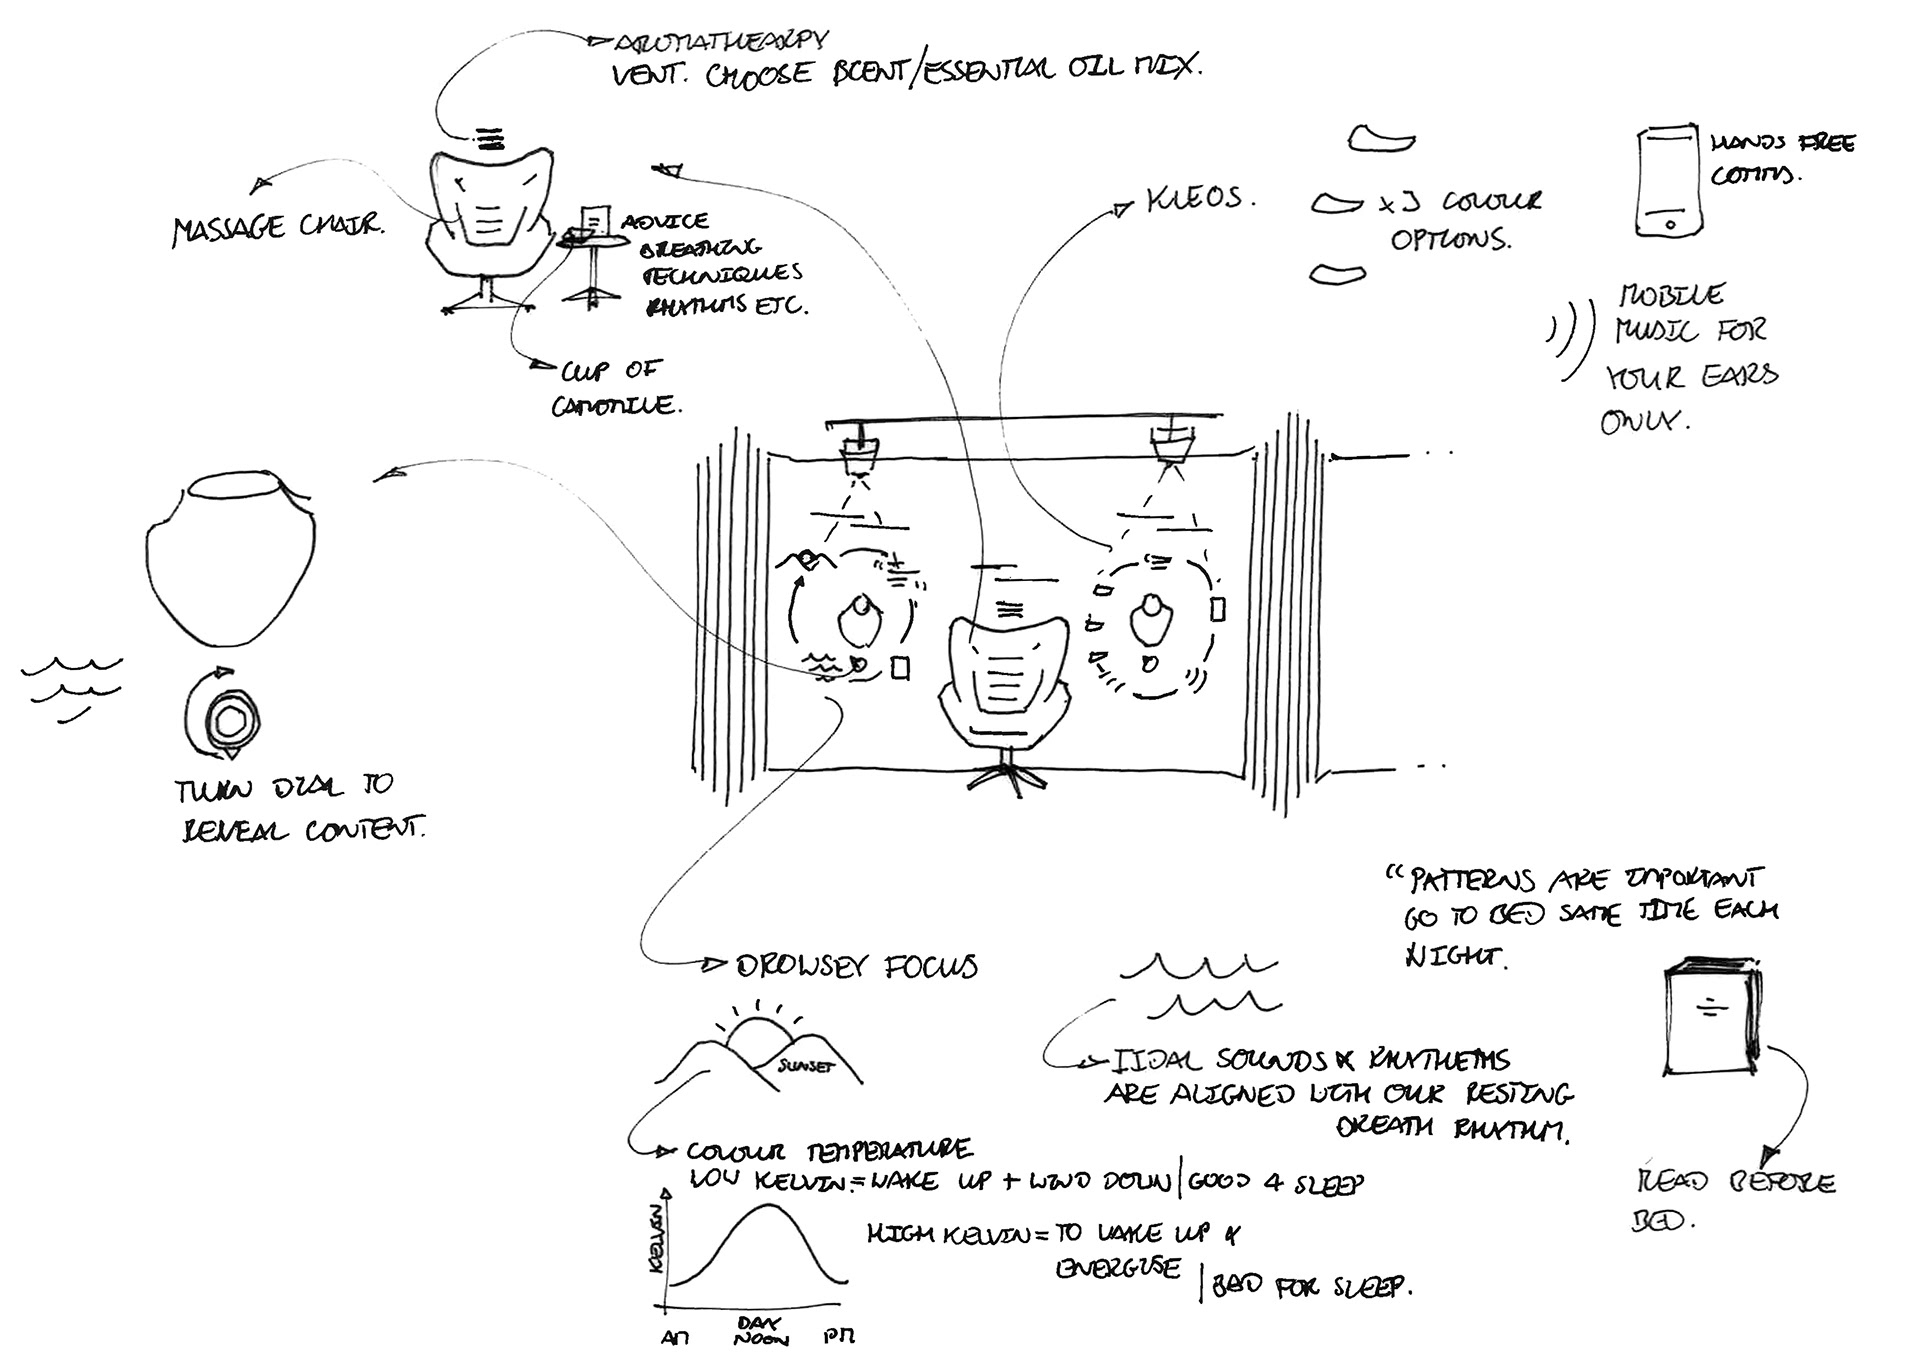 AROMATHEARPY
VENT. CHOOSE SCENT/ESSENTIAL OIL MIX.
MASSAGE CHAIR.
ADVICE
BREATHING
TECHNIQUES
RHYTHMS ETC.
CUP OF
CAMOMILE.
KLEOS.
x3 COLOUR
OPTIONS.
HANDS FREE
COMMS.
MOBILE
MUSIC FOR
YOUR EARS
ONLY.
TURN DIAL TO
REVEAL CONTENT.
"PATTERNS ARE IMPORTANT
GO TO BED SAME TIME EACH
NIGHT.
DROWSEY FOCUS
SUNSET
TIDAL SOUNDS & RHYTHEMS
ARE ALIGNED WITH OUR RESTING
BREATH RHYTHM.
READ BEFORE
BED.
COLOUR TEMPERATURE
LOW KELVIN = WAKE UP + WIND DOWN | GOOD 4 SLEEP
HIGH KELVIN = TO WAKE UP &
ENERGISE | BAD FOR SLEEP.
KELVIN
AM
DAY
NOON
PM